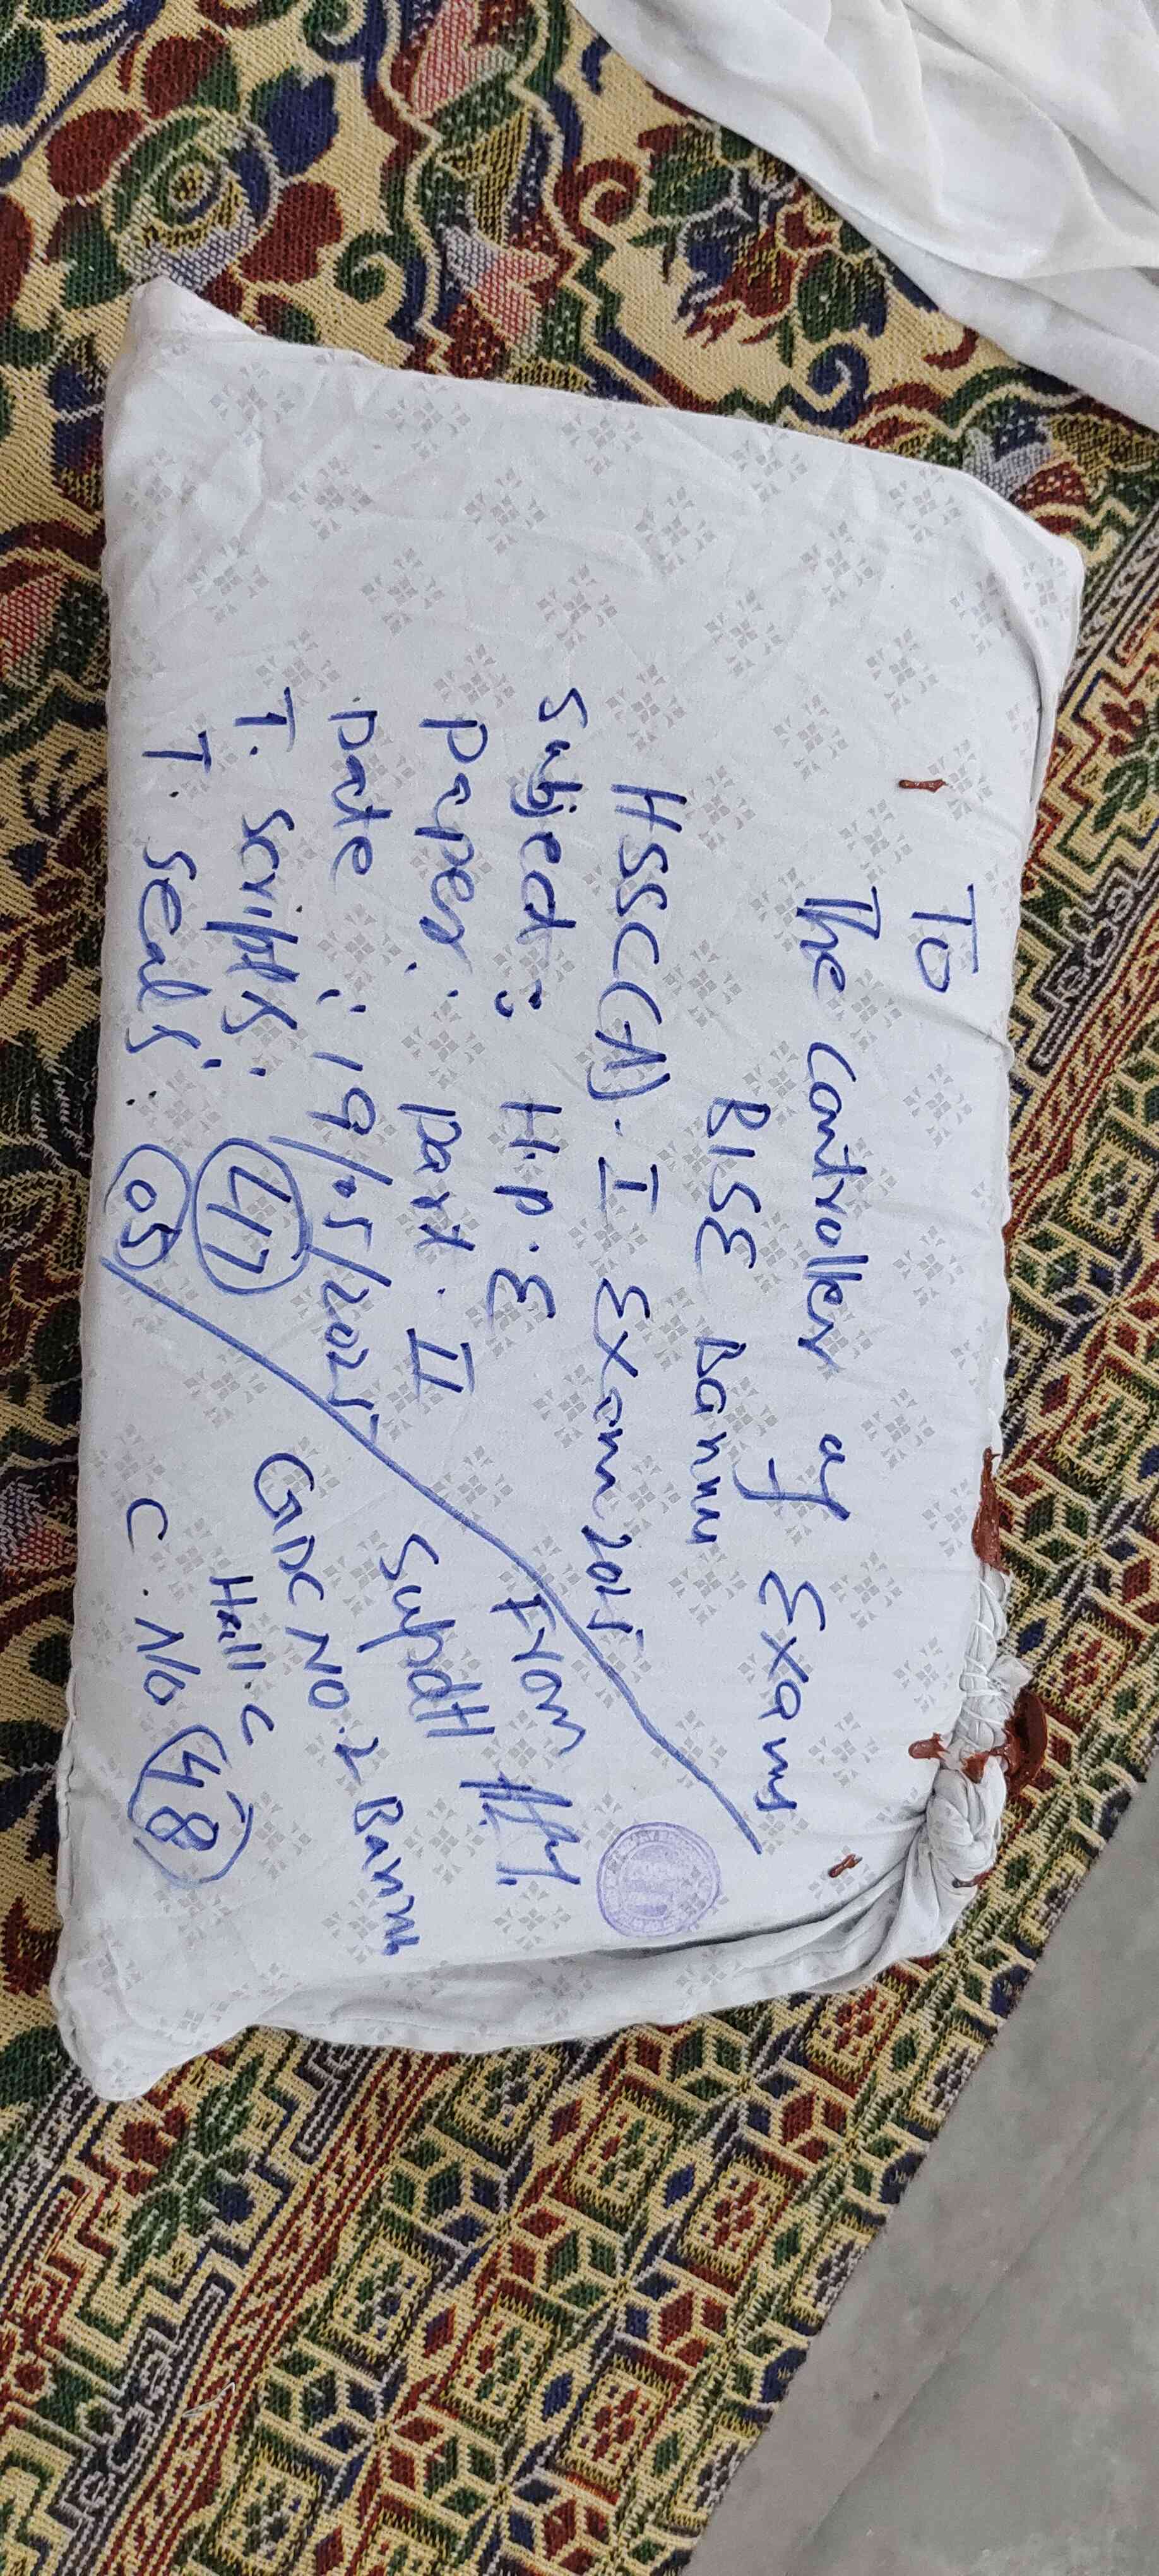 To
The Controller of Exams
BISE Bannu
HSSC(A).I Exam 2025
Subject: H.P.E
Paper: Part.II
Date: 19/05/2025
T. Scripts: 417
T. Seals: 05
From
Supdtt
GDC No.2 Bannu
Hall.C
C.No 48